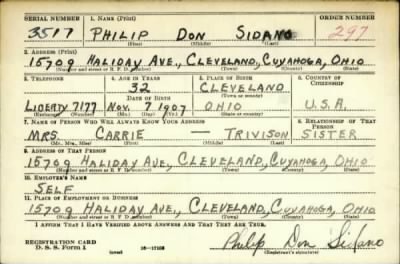 SERIAL NUMBER 1. NAME (Print) ORDER NUMBER
3517 PHILIP DON SIDANO 297
(First) (Middle) (Last)
2. ADDRESS (Print)
15709 HALIDAY AVE., CLEVELAND, CUYAHOGA, OHIO
(Number and street or R. F. D. number) (Town) (County) (State)
3. TELEPHONE 4. AGE IN YEARS 5. PLACE OF BIRTH 6. COUNTRY OF CITIZENSHIP
32 CLEVELAND
DATE OF BIRTH (Town or county)
LIBERTY 7177 NOV. 7 1907 OHIO U.S.A.
(Exchange) (Number) (Mo.) (Day) (Yr.) (State or country)
7. NAME OF PERSON WHO WILL ALWAYS KNOW YOUR ADDRESS 8. RELATIONSHIP OF THAT PERSON
MRS. CARRIE — TRIVISON SISTER
(Mr., Mrs., Miss) (First) (Middle) (Last)
9. ADDRESS OF THAT PERSON
15709 HALIDAY AVE., CLEVELAND, CUYAHOGA, OHIO
(Number and street or R. F. D. number) (Town) (County) (State)
10. EMPLOYER'S NAME
SELF
11. PLACE OF EMPLOYMENT OR BUSINESS
15709 HALIDAY AVE., CLEVELAND, CUYAHOGA, OHIO
(Number and street or R. F. D. number) (Town) (County) (State)
I AFFIRM THAT I HAVE VERIFIED ABOVE ANSWERS AND THAT THEY ARE TRUE.
REGISTRATION CARD
D. S. S. Form 1 (over) Philip Don Sidano
(Registrant's signature)